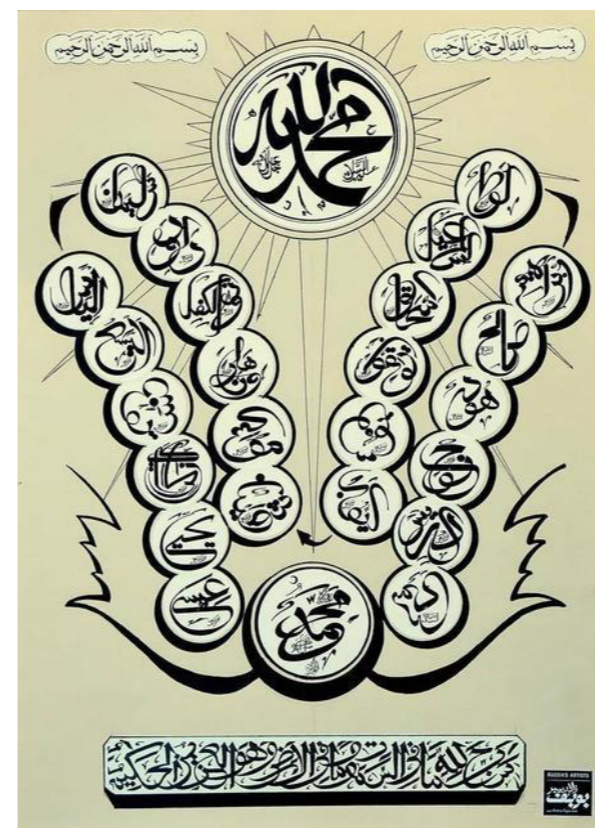 بسم الله الرحمن الرحيم
بسم الله الرحمن الرحيم
الله
محمد
لوط
اسماعيل
اسحاق
يعقوب
يوسف
ايوب
ابراهيم
صالح
هود
نوح
ادريس
آدم
سليمان
داود
ذوالكفل
هارون
موسى
شعيب
الياس
اليسع
يونس
زكريا
يحيى
عيسى
محمد
سبح لله ما في السموت وما في الارض وهو العزيز الحكيم